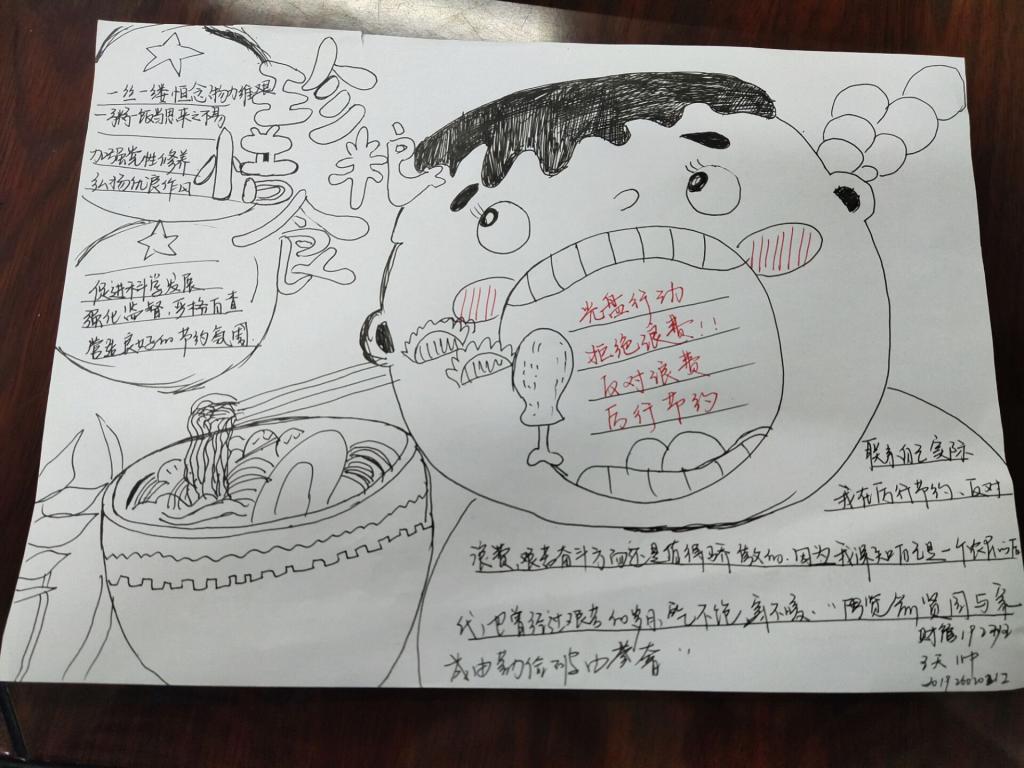 珍惜粮食
一丝一缕恒念物力维艰
一粥一饭当思来之不易
加强党性修养
弘扬优良作风
促进科学发展
强化监督,严格自查
营造良好的节约氛围.
光盘行动
拒绝浪费!!
反对浪费
厉行节约
联系自己实际
我在厉行节约、反对
浪费,艰苦奋斗方面还是值得骄傲的.因为我深知自己是一个农民的后
代,也曾经过艰苦的岁月,吃不饱,穿不暖."历览前贤国与家
成由勤俭破由奢"
财管192班